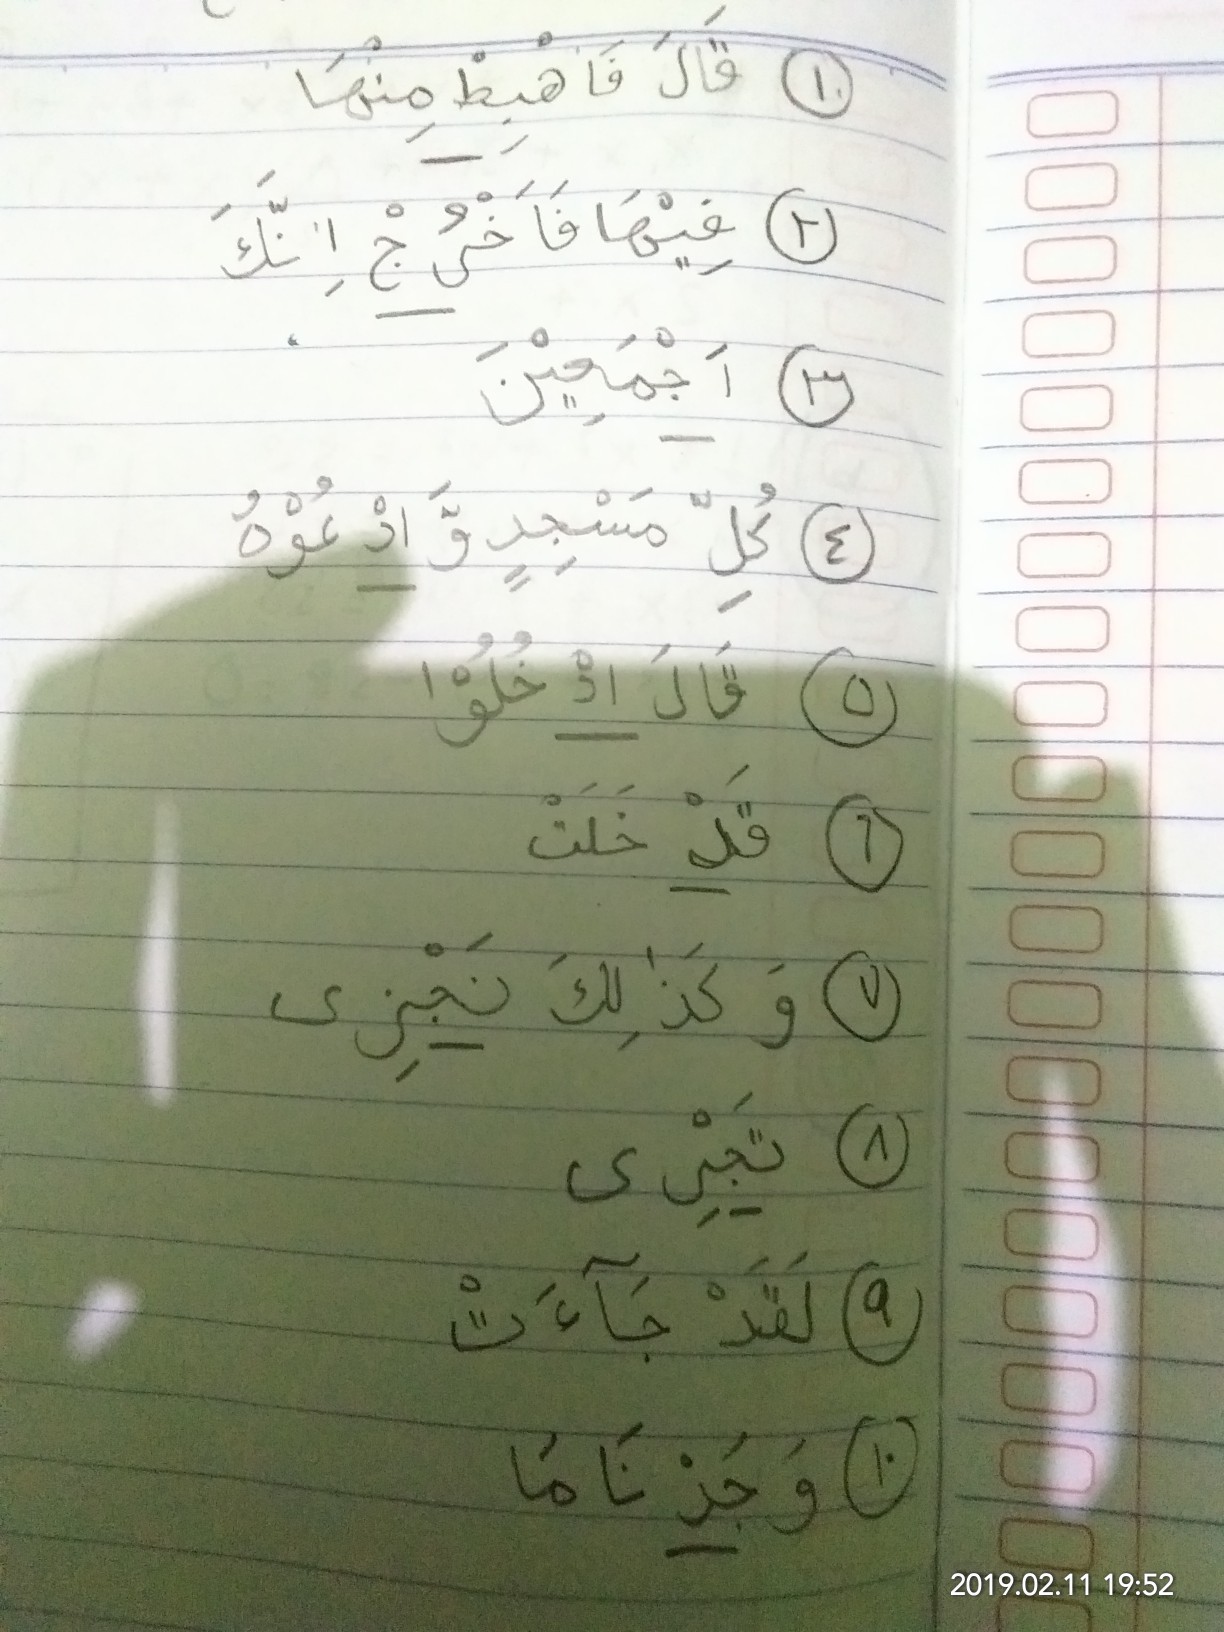 ١. قَالَ فَاهْبِطْ مِنْهَا
٢ فِيْهَا فَاَخْرُجْ اِنَّكَ
٣ اَجْمَعِيْنَ
٤ كُلِّ مَسْجِدٍ وَّادْعُوْهُ
٥ قَالَ ادْخُلُوْا
٦ قَدْ خَلَتْ
٧ وَكَذٰلِكَ نَجْزِى
٨ تَجْرِى
٩ لَقَدْ جَآءَتْ
١٠ وَجَدْنَا مَا
2019.02.11 19:52